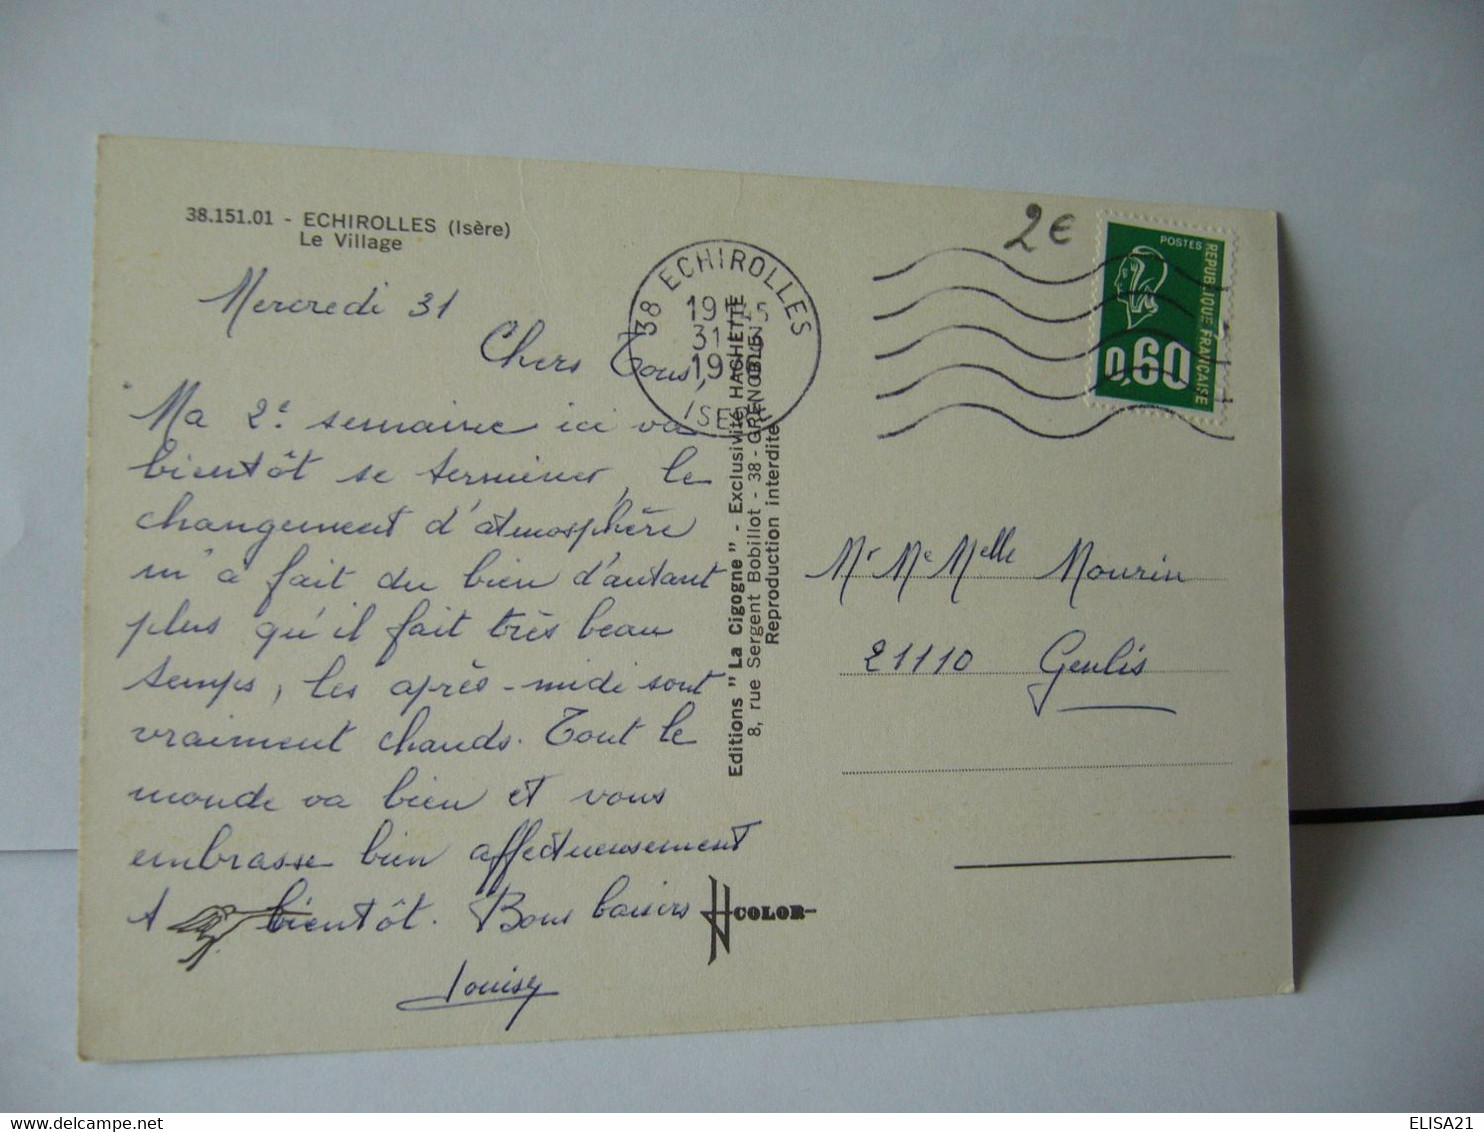 38.151.01 - ECHIROLLES (Isère)
Le Village
Mercredi 31
Chers Tous,
Ma 2e semaine ici va
bientôt se terminer, le
changement d'atmosphère
m'a fait du bien d'autant
plus qu'il fait très beau
temps, les après-midi sont
vraiment chauds. Tout le
monde va bien et vous
embrasse bien affectueusement
A bientôt. Bons baisers
Louisy
38 ECHIROLLES
31
ISERE
Editions "La Cigogne" - Exclusivité HACHETTE
8, rue Sergent Bobillot - 38 - GRENOBLE
Reproduction interdite
COLOR
2€
POSTES
REPUBLIQUE FRANCAISE
0,60
Mr Me Melle Mourin
21110 Genlis
ELISA21